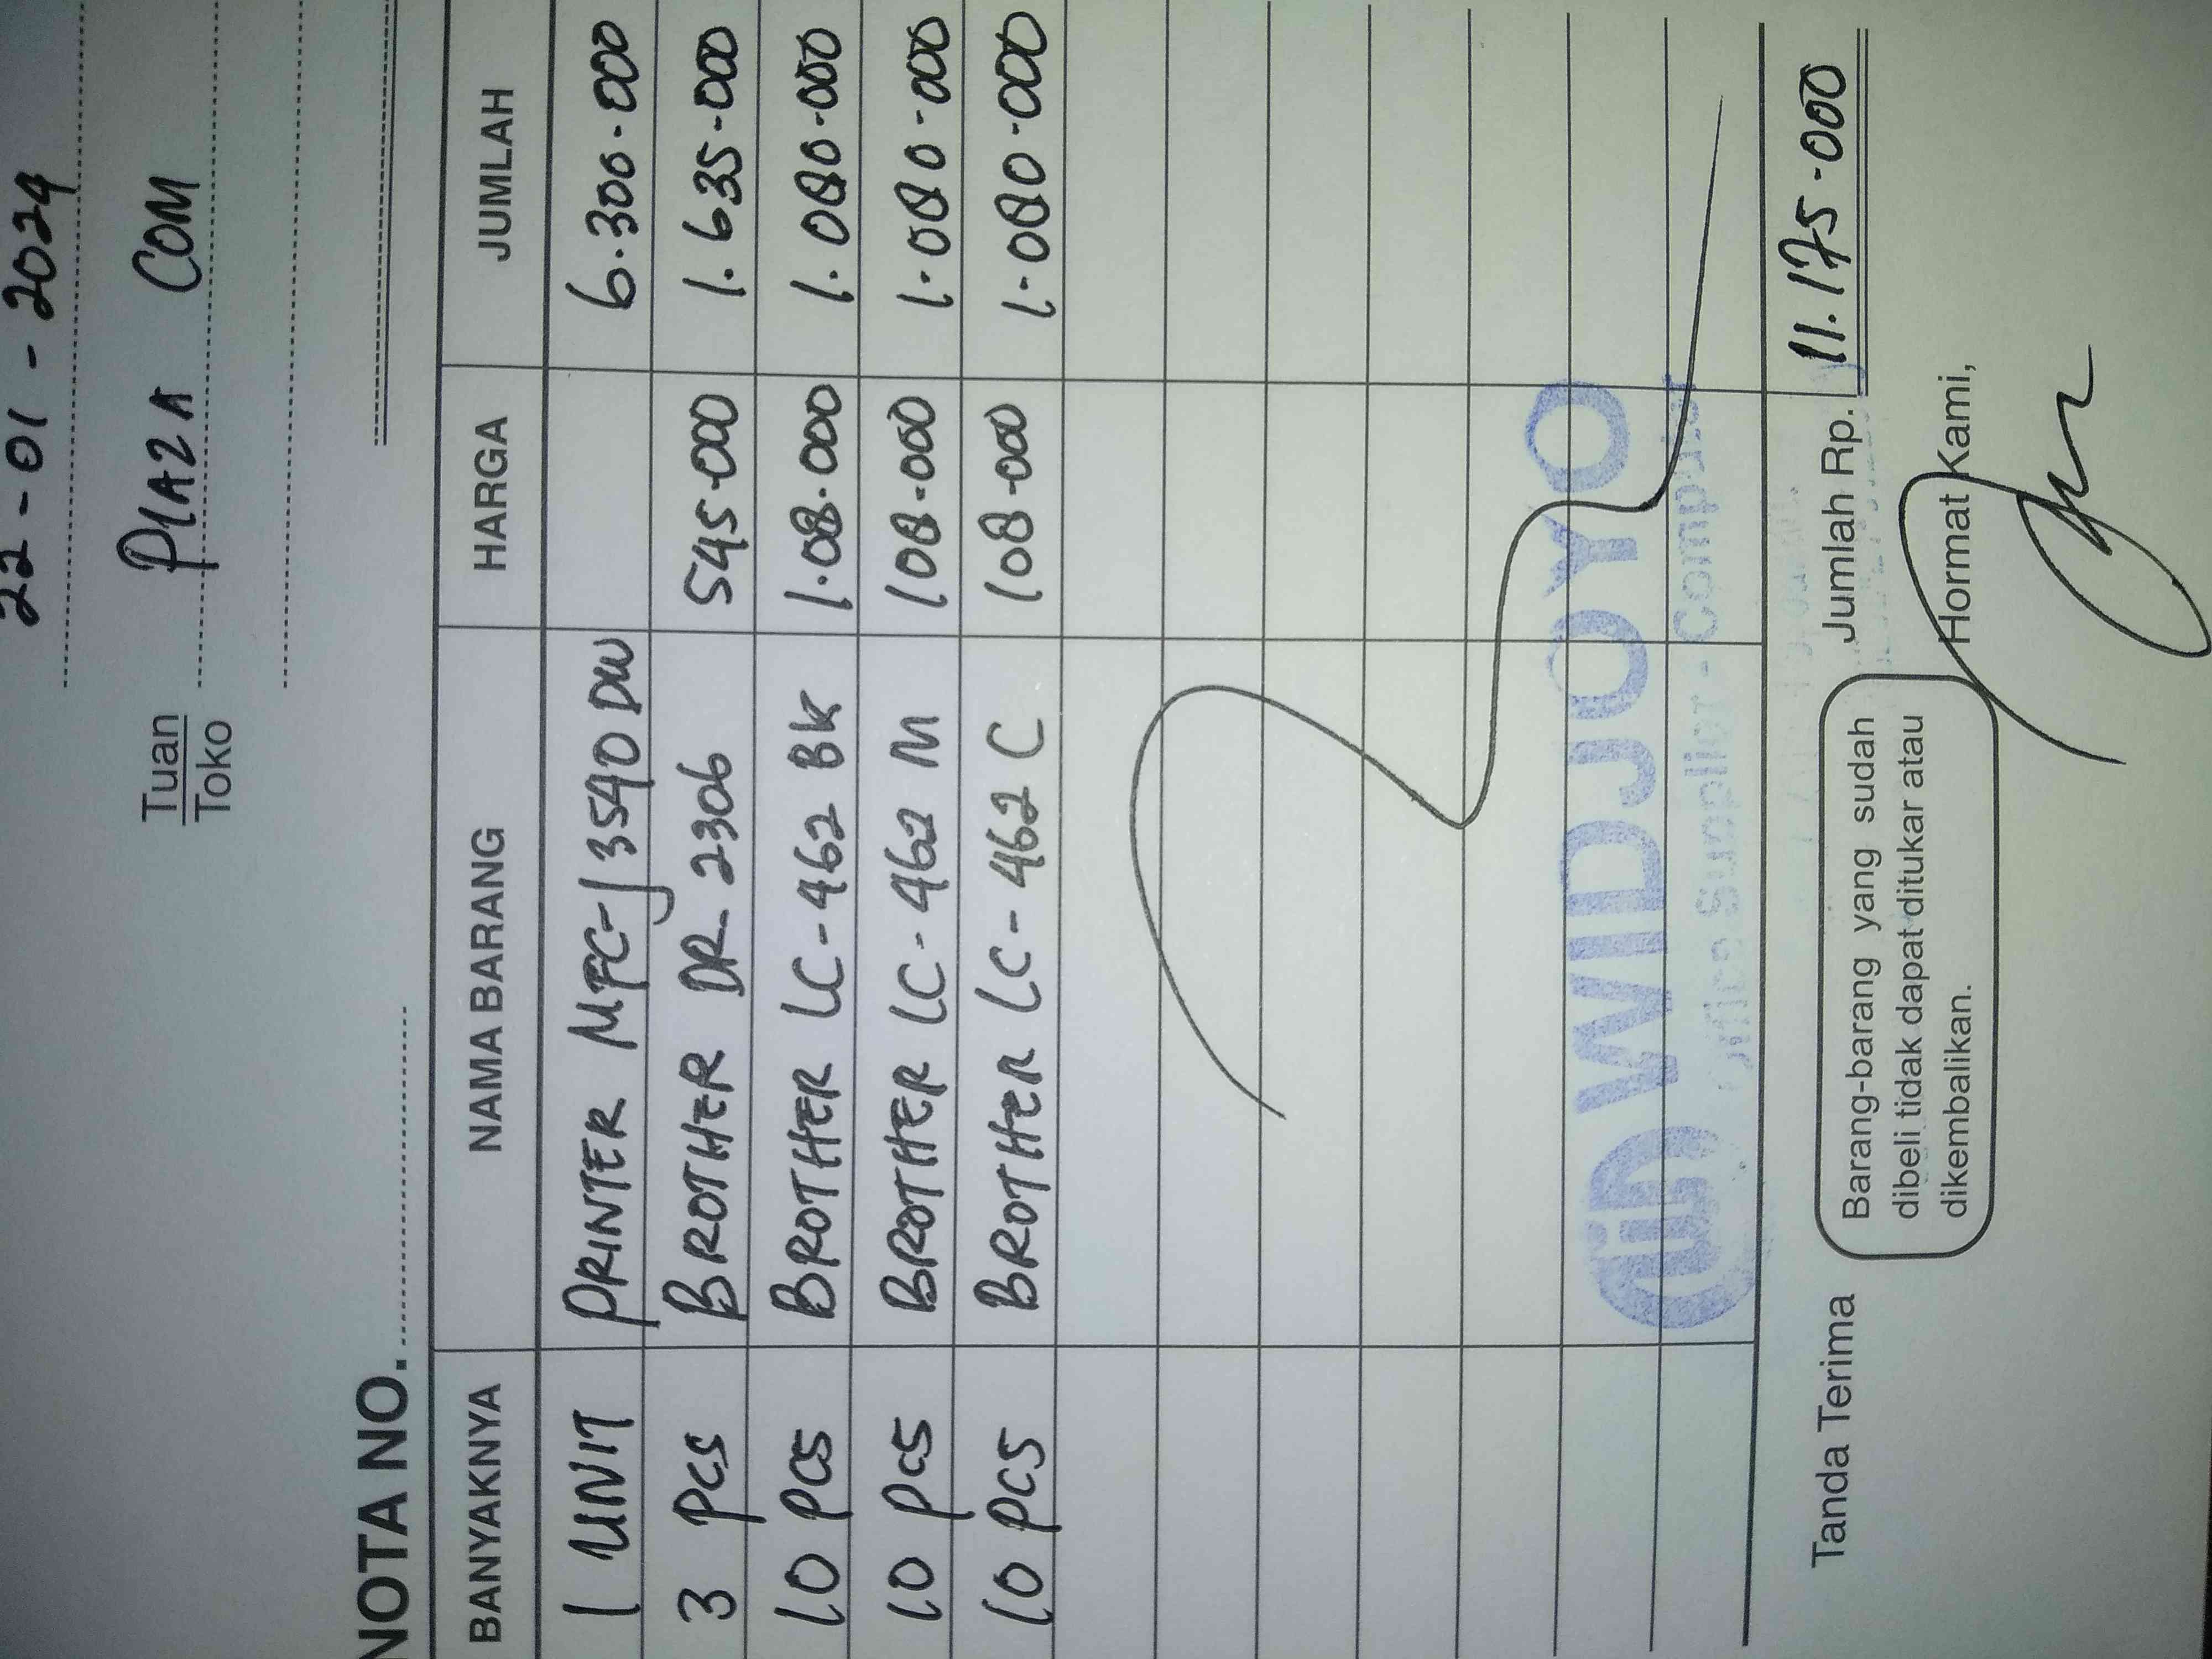 22-01-2024
Tuan
Toko
PLAZA COM
NOTA NO.
BANYAKNYA NAMA BARANG HARGA JUMLAH
1 UNIT PRINTER MFC-J3540DW 6.300.000
3 PCS BROTHER DR-2306 545.000 1.635.000
10 PCS BROTHER LC-462 BK 1.08.000 1.080.000
10 PCS BROTHER LC-462 M 108.000 1.080.000
10 PCS BROTHER LC-462 C 108.000 1.080.000
WIDJOYO
Office Supplier - Computer
Tanda Terima
Jumlah Rp. 11.175.000
Barang-barang yang sudah
dibeli tidak dapat ditukar atau
dikembalikan.
Hormat Kami,